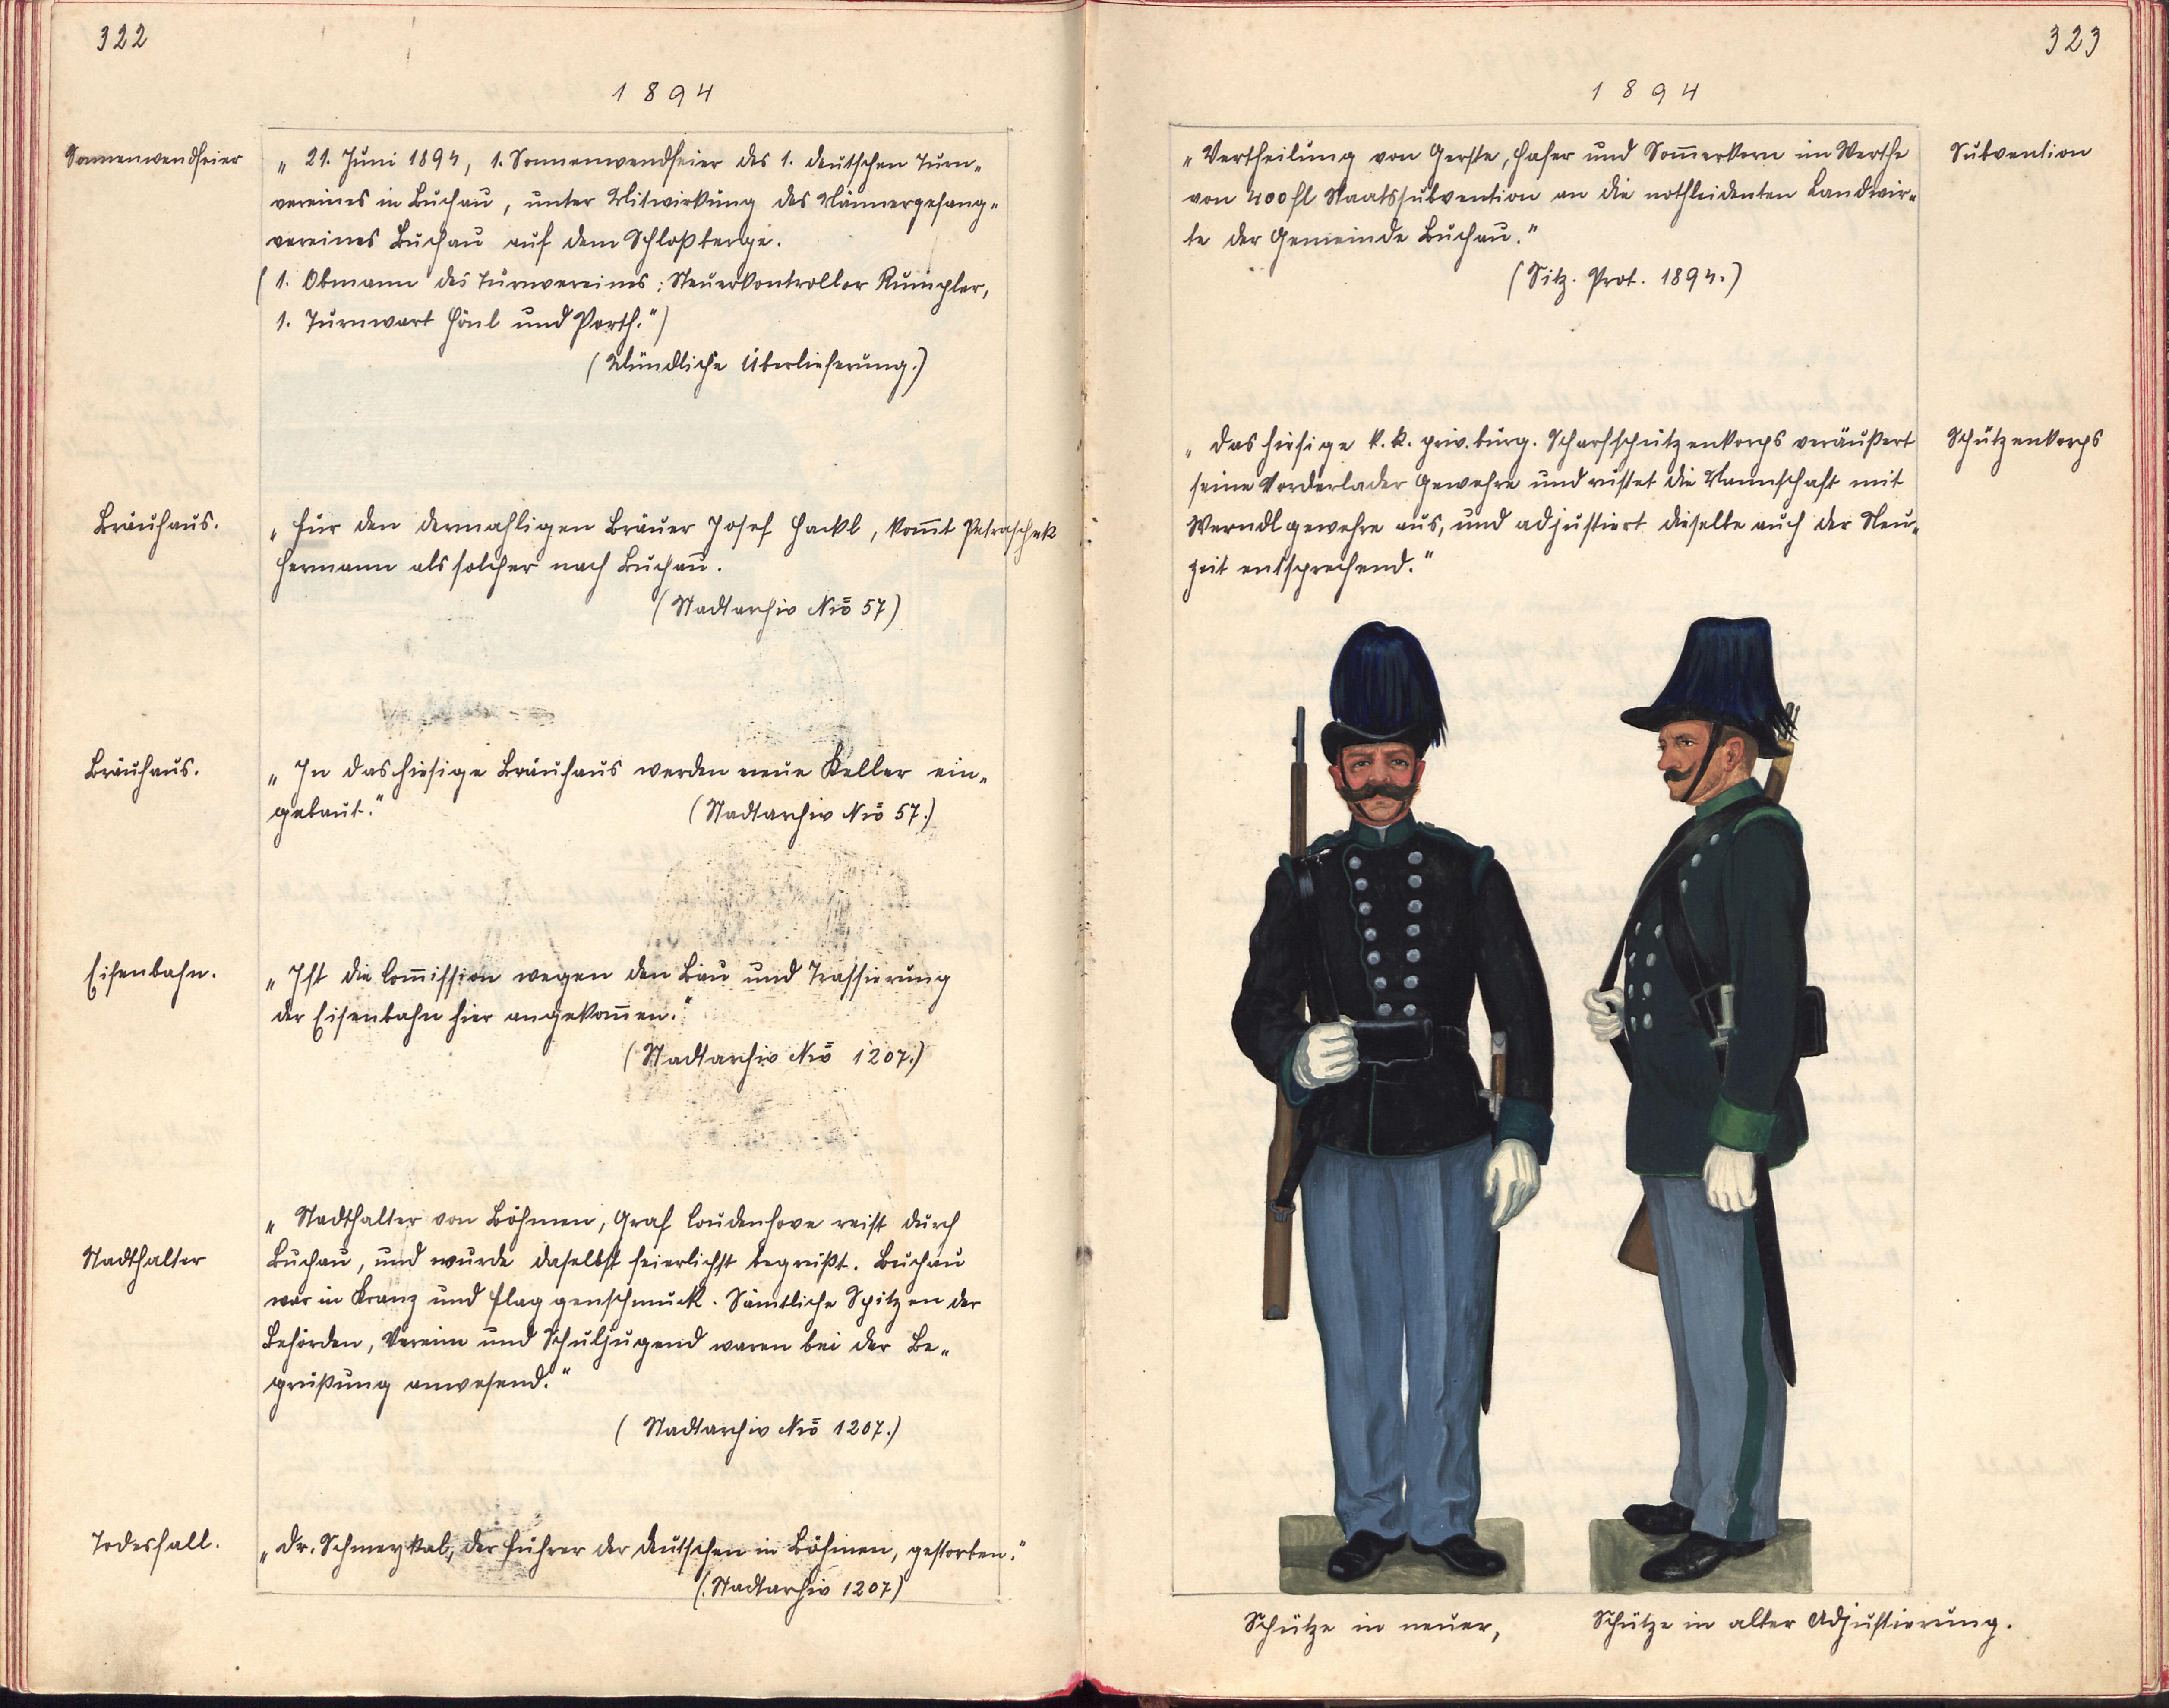 322
1894
Sonnenwendfeier
„ 21. Juni 1894, 1. Sonnenwendfeier des 1. deutschen Turn„
vereines in Buchau, unter Mitwirkung des Männergesang„
vereines Buchau auf dem Schloßberge.
(1. Obmann des Turnvereines: Steuerkontrollor Rumpler,
1. Turnwart Hönl und Porth.")
(Mündliche Überlieferung.)
Bräuhaus.
„ Für den dermahligen Bräuer Josef Hackl, kom̄t Petraschek
Hermann als solcher nach Buchau.
(Stadtarchiv Nrō 57)
Bräuhaus.
„ In das hiesige Bräuhaus werden neue Keller ein„
gebaut."
(Stadtarchiv Nrō 57.)
Eisenbahn.
„ Ist die Com̄ission wegen den Bau und Trassierung
der Eisenbahn hier angekom̄en."
(Stadtarchiv Nrō 1207.)
Stadthalter
„ Stadthalter von Böhmen, Graf Coudenhove reist durch
Buchau, und wurde daselbst feierlichst begrüßt. Buchau
war in Kranz und Flaggenschmuck. Sämtliche Spitzen der
Behörden, Verein und Schuljugend waren bei der Be„
grüßung anwesend."
(Stadtarchiv Nrō 1207.)
Todesfall.
„ Dr. Schmeykal, der Führer der Deutschen in Böhmen, gestorben."
(Stadtarchiv 1207)
323
1894
„ Vertheilung von Gerste, Hafer und Som̄erkorn im Werthe
von 400 fl Staatssubvention an die nothleidenten Landwir„
te der Gemeinde Buchau."
(Sitz. Prot. 1894.)
Subvention
„ Das hiesige k.k. priv. bürg. Scharfschützenkorps veräußert
seine Vorderlader Gewehre und rüstet die Mannschaft mit
Werndlgewehre aus, und adjustiert dieselbe auch der Neu„
zeit entsprechend."
Schützenkorps
Schütze in neuer,
Schütze in alter Adjustierung.